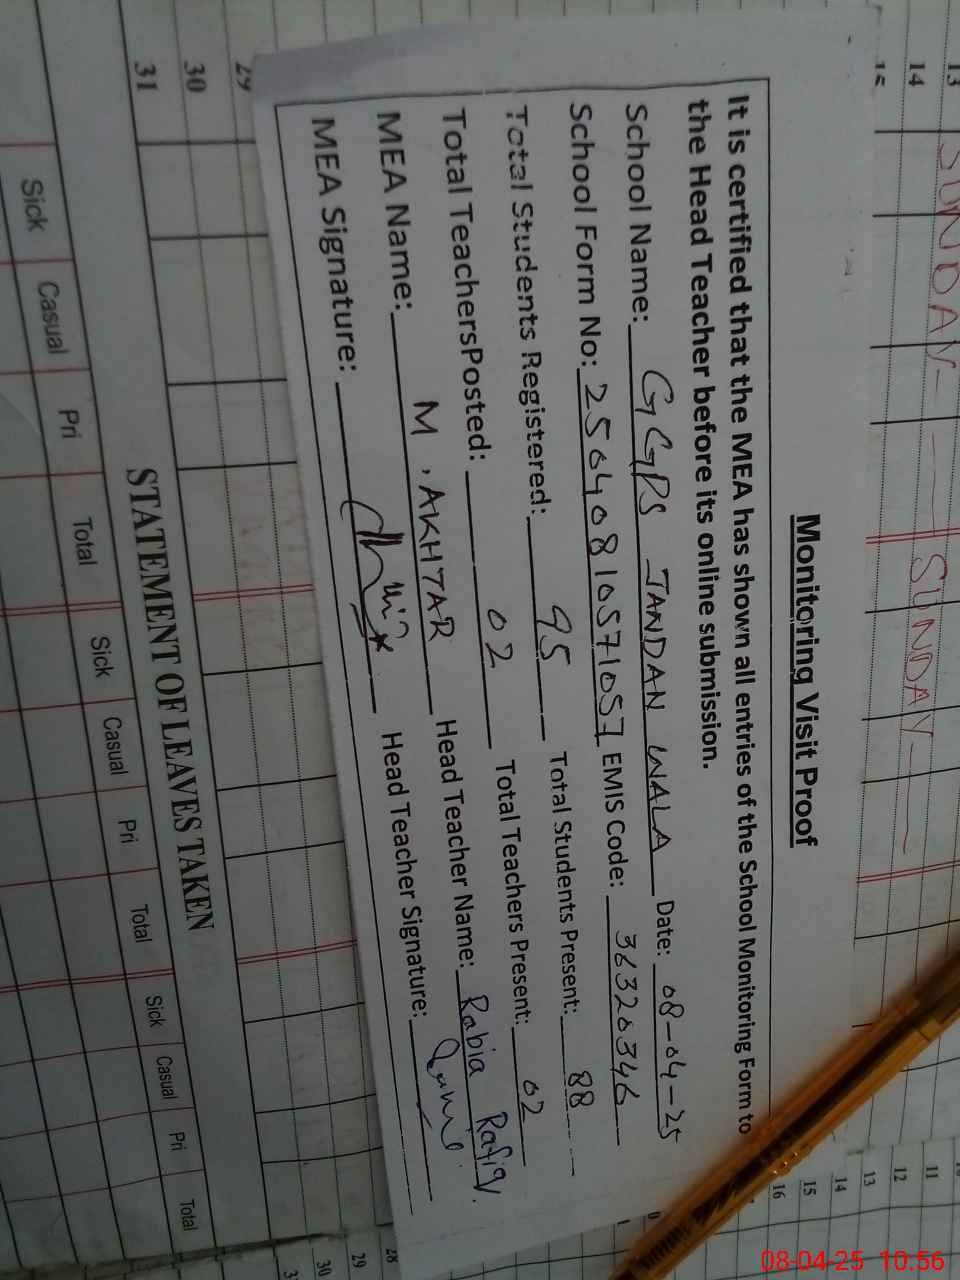 Monitoring Visit Proof
It is certified that the MEA has shown all entries of the School Monitoring Form to
the Head Teacher before its online submission.
School Name: GGPS JANDAN WALA Date: 08-04-25
School Form No: 25040810571057 EMIS Code: 36320346
Total Students Registered: 95 Total Students Present: 88
Total Teachers Posted: 02 Total Teachers Present: 02
MEA Name: M. AKHTAR Head Teacher Name: Rabia Rafiq.
MEA Signature: Head Teacher Signature:
SUNDAY SUNDAY
13
14
15
29
30
31
STATEMENT OF LEAVES TAKEN
Sick Casual Pri Total Sick Casual Pri Total Sick Casual Pri Total
11
12
13
14
15
16
28
29
30
08-04-25 10:56